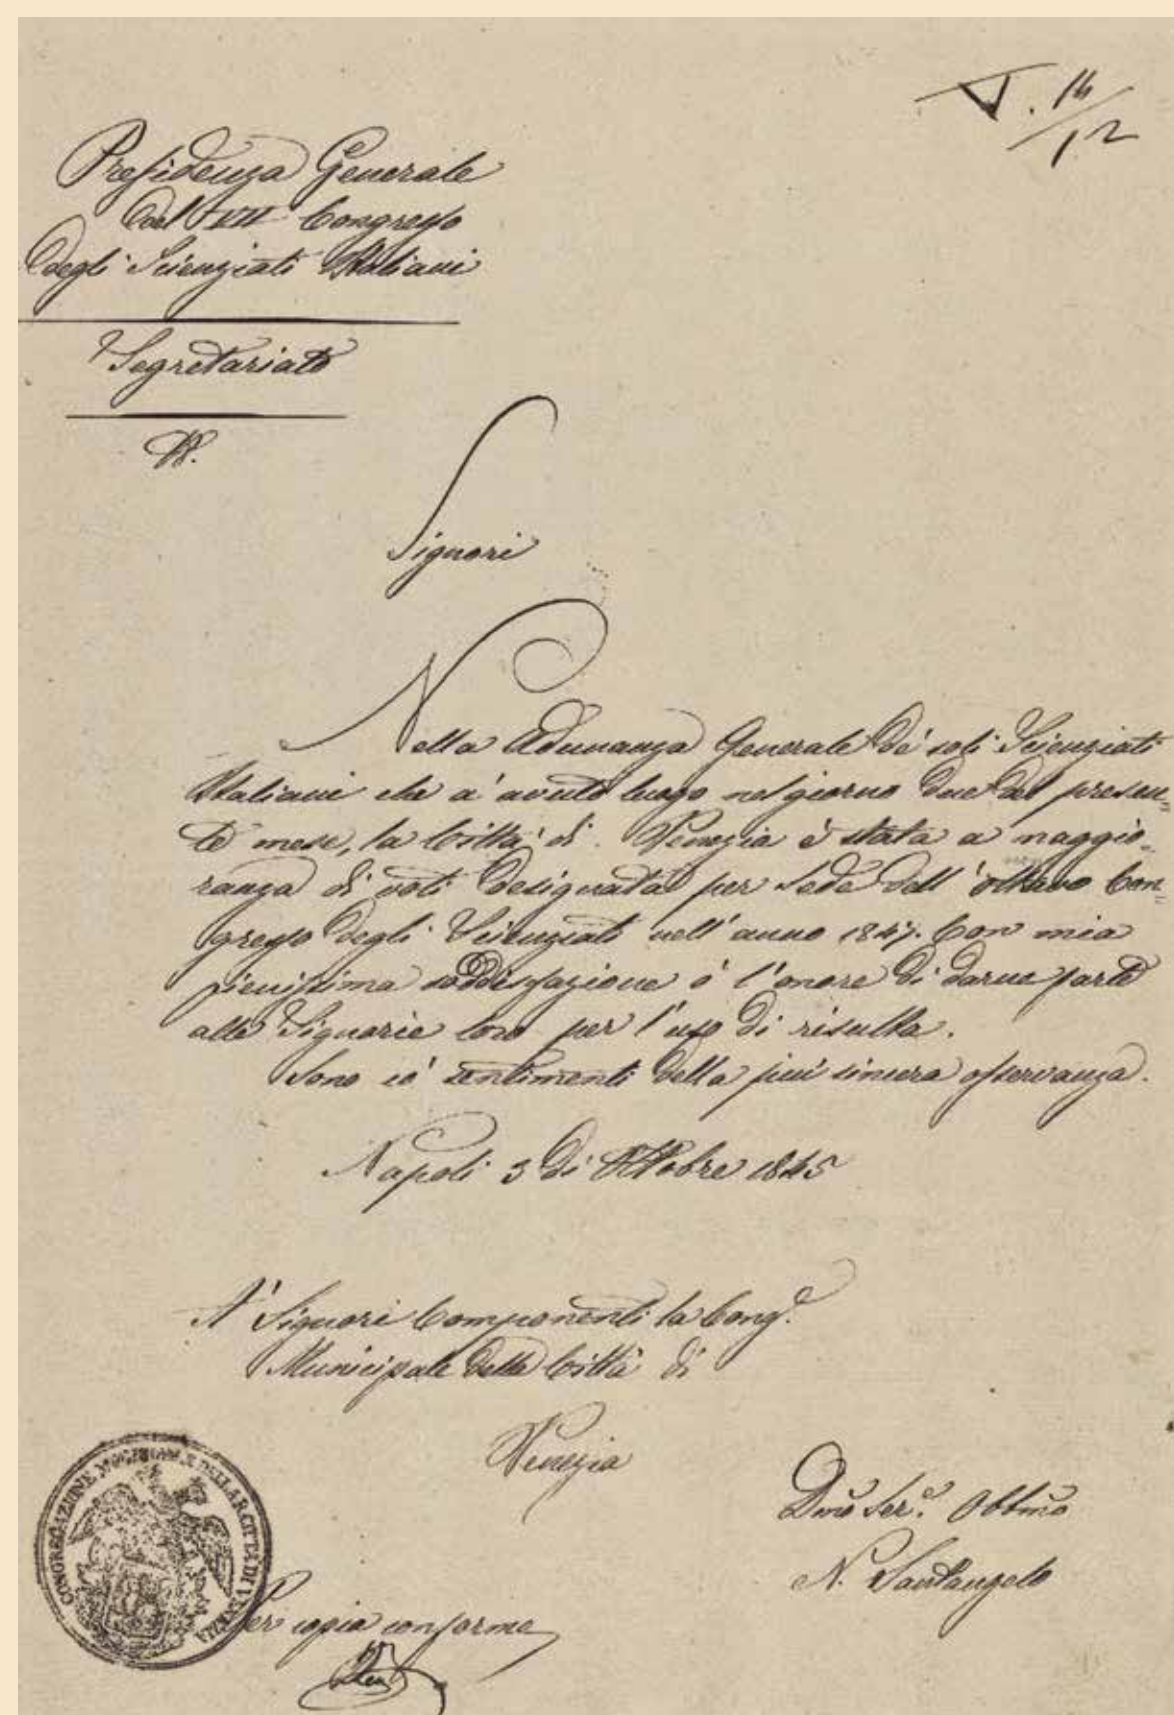 V. 14/12
Presidenza Generale
del VII Congresso
degli Scienziati Italiani
Segretariato
N.
Signori
Nella Adunanza Generale de' soli Scienziati
Italiani che a' avuto luogo nel giorno due del presen=
te mese, la Città di Venezia è stata a maggio=
ranza di voti designata per sede dell'ottavo Con=
gresso degli Scienziati nell'anno 1847. Con mia
pienissima soddisfazione ò l'onore di darne parte
alle Signorie loro per l'uso di risulta.
Sono co' sentimenti della più sincera osservanza.
Napoli 3 di Ottobre 1845
A' Signori Componenti la Cong.e
Municipale della Città di
Venezia
Dmo Ser.e Obbmo
N. Santangelo
CONGREGAZIONE MUNICIPALE DELLA R. CITTÀ DI VENEZIA
Per copia conforme